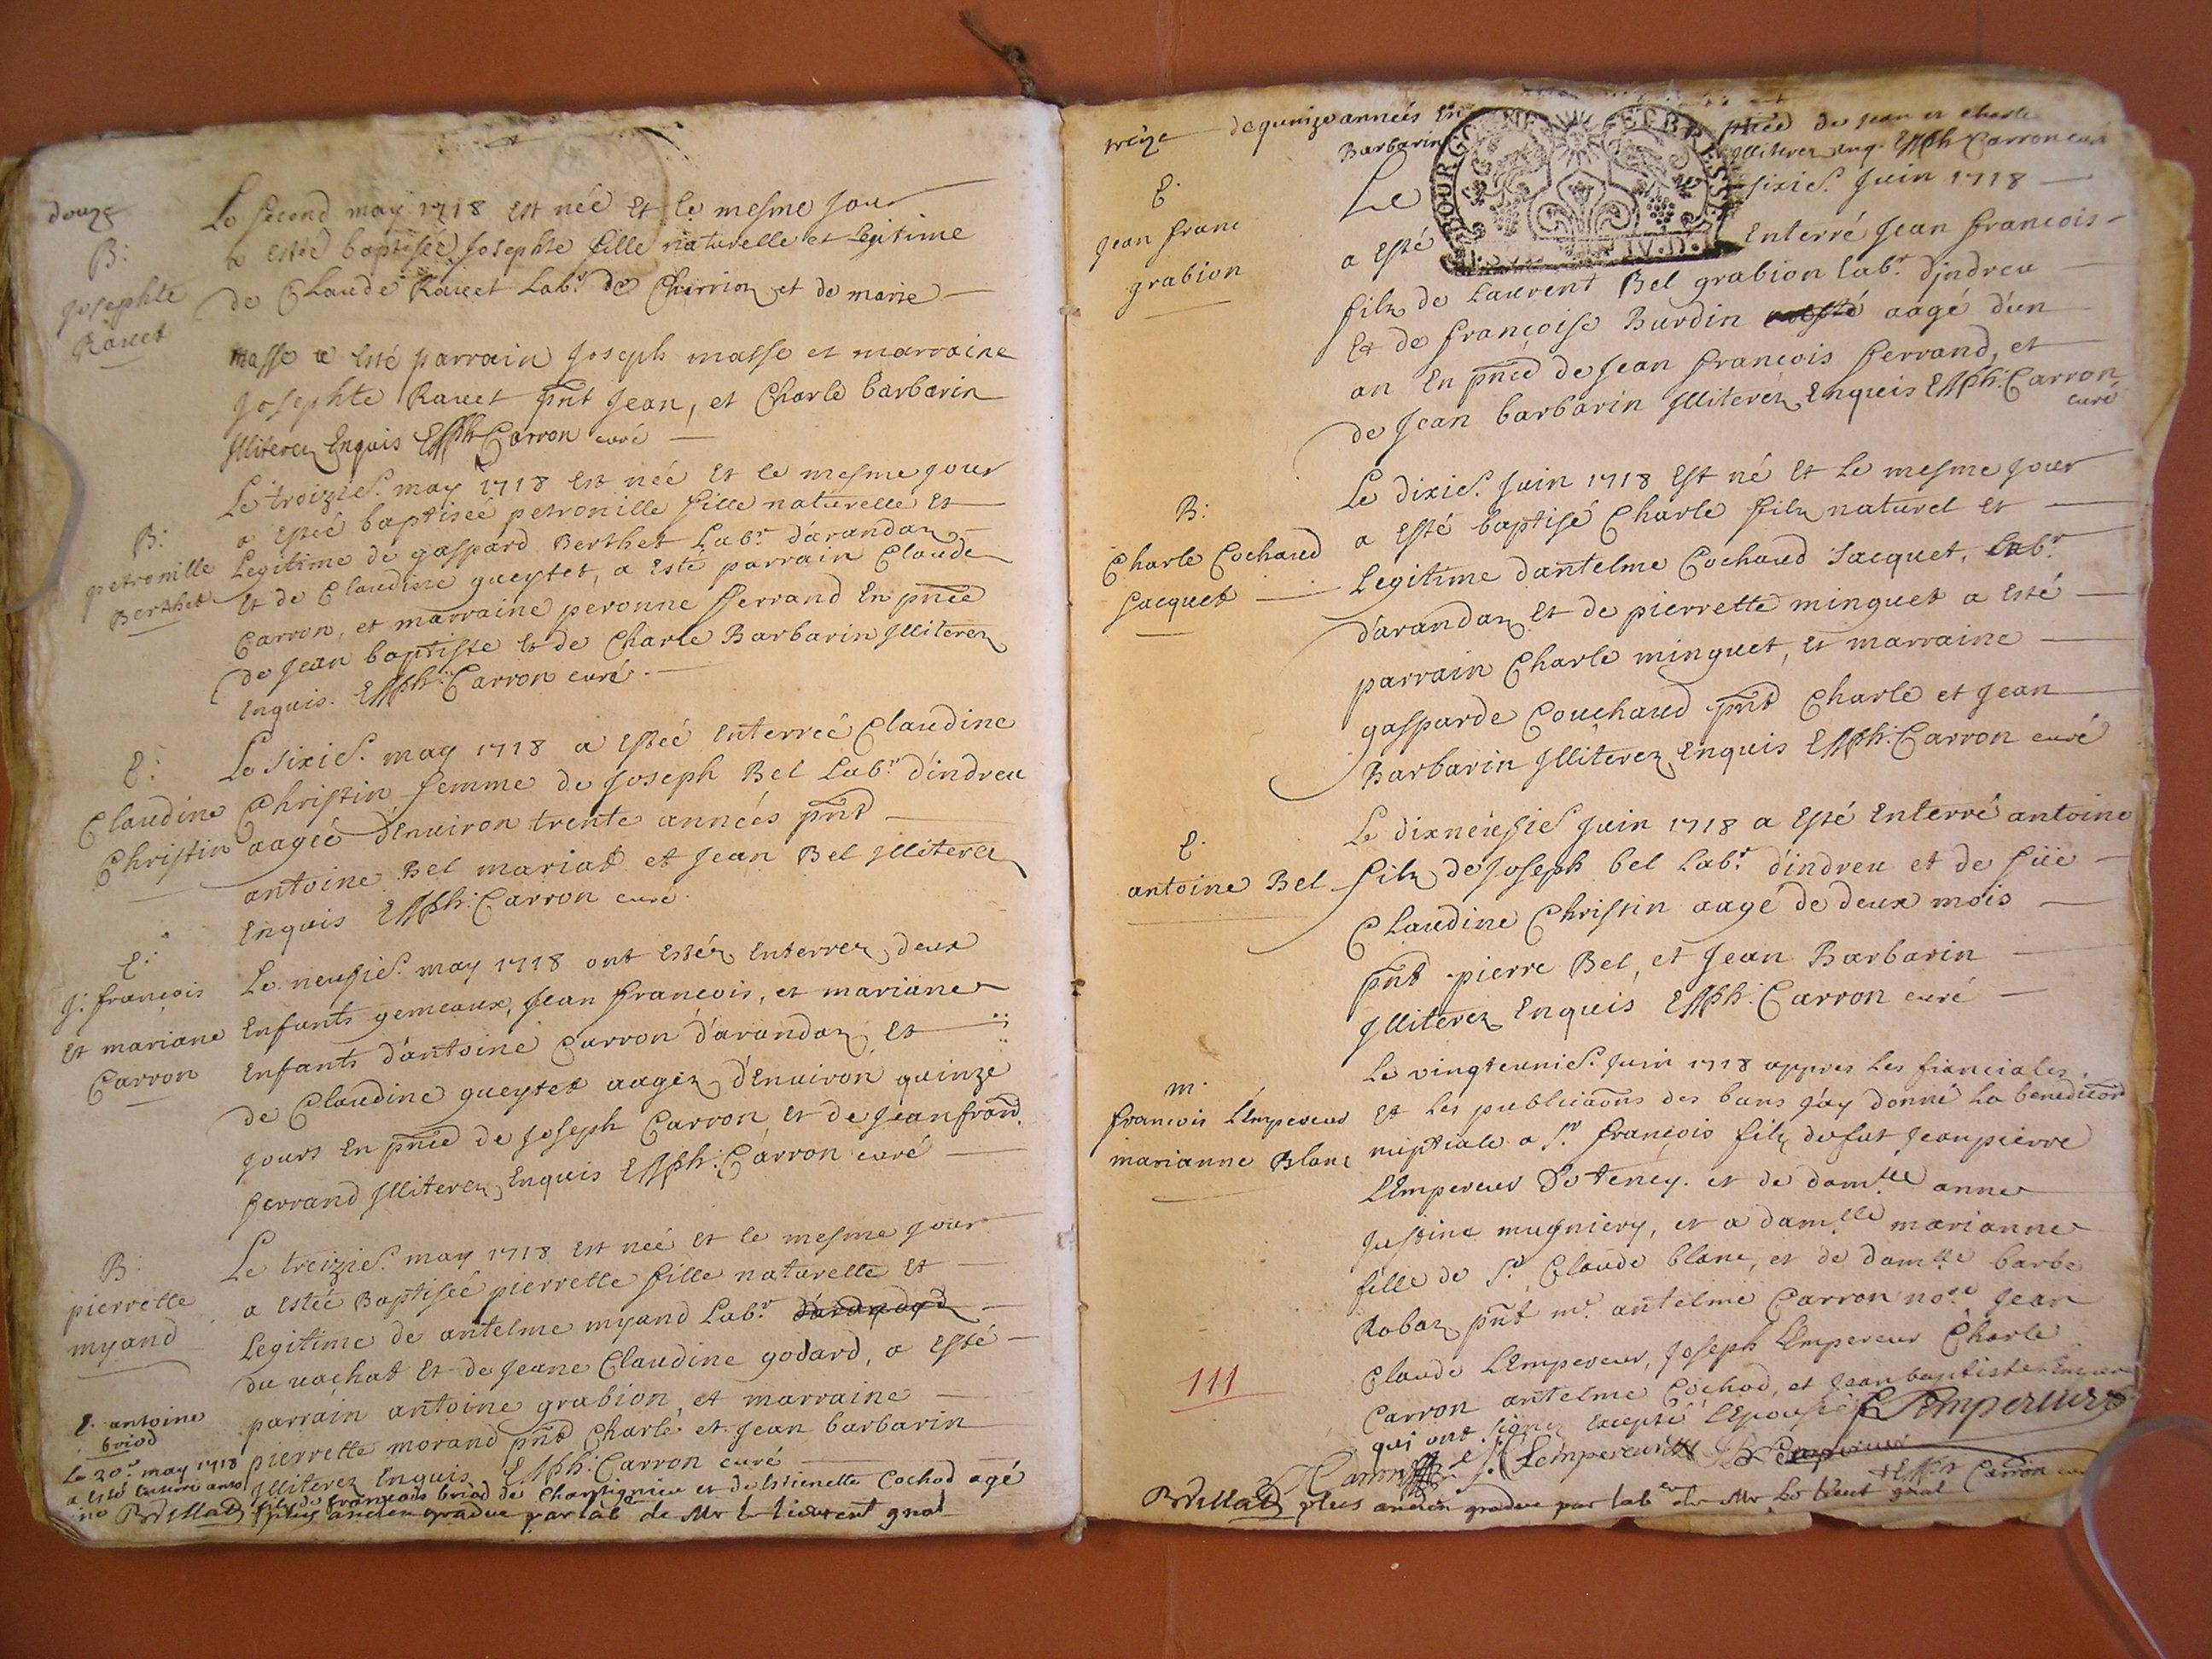 douze
B:
Josephte
Ravet
Le second may 1718 est née et le mesme jour
a estée baptisée Josephte fille naturelle et legitime
de Claude Ravet Labr. de et de marie
masse a esté parrain Joseph masse et marraine
Josephte Ravet pnt Jean, et Charle barbarin
Illiterez Enquis Carron curé
B:
petronille
Berthet
Le troizie. may 1718 est née et le mesme jour
a estée baptisée petronille fille naturelle et
Legitime de gaspard Berthet Labr. d'arandaz
et de Claudine gueytet, a esté parrain Claude
Carron, et marraine peronne ferrand En pnce
de Jean baptiste et de Charle Barbarin Illiterez
Enquis. Carron curé.
E:
Claudine
Christin
Le sixie. may 1718 a estée enterrée Claudine
Christin femme de Joseph Bel Labr. d'indreu
aagée d'Enuiron trente années pnt
antoine Bel mariat et Jean Bel Illiterez
Enquis Carron curé.
E:
J: françois
et mariane
Carron
Le neufie. may 1718 ont estéz enterrez deux
Enfants gemeaux, Jean françois, et mariane
Enfants d'antoine Carron d'arandaz et
de Claudine gueytet aagéz d'Enuiron quinze
jours En pnce de Joseph Carron et de Jean fran.
ferrand Illiterez Enquis Carron curé
B
pierrette
myand
Le treizie. may 1718 est née et le mesme jour
a estée Baptisée pierrette fille naturelle et
Legitime de antelme myand Labr.
du vachat et de Jeane Claudine godard, a esté
parrain antoine grabion, et marraine
pierrette morand pnt Charle et Jean barbarin
Illiterez Enquis Carron curé
E. antoine
briod
Le 20e may 1718
a esté enterré anto
ine fils de françois briod de et de estienette Cochod agé
Brillat plus ancien gradué par l'ab de Mr le lieutent gnal
treize
de quinze années En pnce de Jean et charle
Barbarin Illiterez enq. Carron curé
E.
Jean franc
grabion
Le sixie. Juin 1718
a esté Enterré Jean françois
filz de Laurent Bel grabion labr. d'jndreu
et de françoise Burdin aagé d'un
an En pnce de Jean françois ferrand, et
de Jean barbarin Illiteréz Enquis Carron
curé
B:
Charle Cochaud
Jacquet
Le dixie. Juin 1718 Est né et Le mesme jour
a esté baptisé Charle filz naturel et
Legitime d'antelme Cochaud Jacquet, Labr.
d'arandaz et de pierrette minguet a esté
parrain Charle minguet, et marraine
gasparde Couchaud pnt Charle et Jean
Barbarin Illiterez Enquis Carron curé
E.
antoine Bel
Le dixneufie Juin 1718 a esté Enterré antoine
filz de Joseph bel Labr. d'indreu et de füe
Claudine Christin aagé de deux mois
pnt pierre Bel, et Jean Barbarin
Illiterez Enquis Carron curé
m.
francois L'Empereur
marianne Blanc
Le vingteunie. Juin 1718 appres les fianciales
Et les publicaons des bans j'ay donné la benediction
nuptiale a Sr. françois filz de fut Jean pierre
L'Empereur De tenéy. et de damlle anne
Justine mugniery, et a damlle marianne
fille de Sr. Claude blanc, et de damlle barbe
Robaz pnt mr. antelme Carron nore Jean
Claude L'Empereur, Joseph L'Empereur Charle
Carron antelme Cochod, et Jean baptiste
qui ont signez Excepté L'Epouse
111
Lempereur
Carron J. C. Lempereur Lempereur
Carron curé
Brillat plus ancien gradué par l'ab de Mr le lieut gnal
BOURGOGNE ET BRESSE